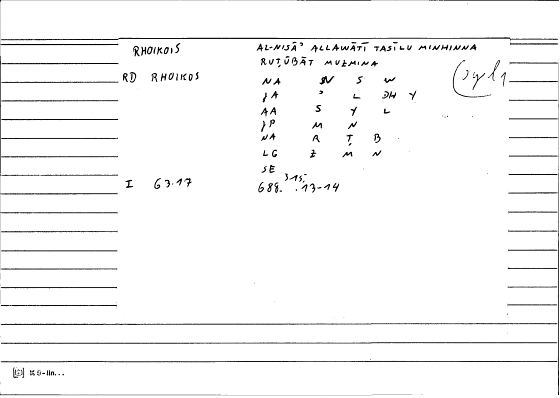 RHOIKOIS AL-NISĀʾ ALLAWĀTĪ TASĪLU MINHINNA
RUṬŪBĀT MUZMINA
RD RHOIKOS NA N S W
JA ʾ L DH Y
AA S Y L
JP M N
NA R Ṭ B
LG Z M N
SE
I 63.17 688. 315, .13-14